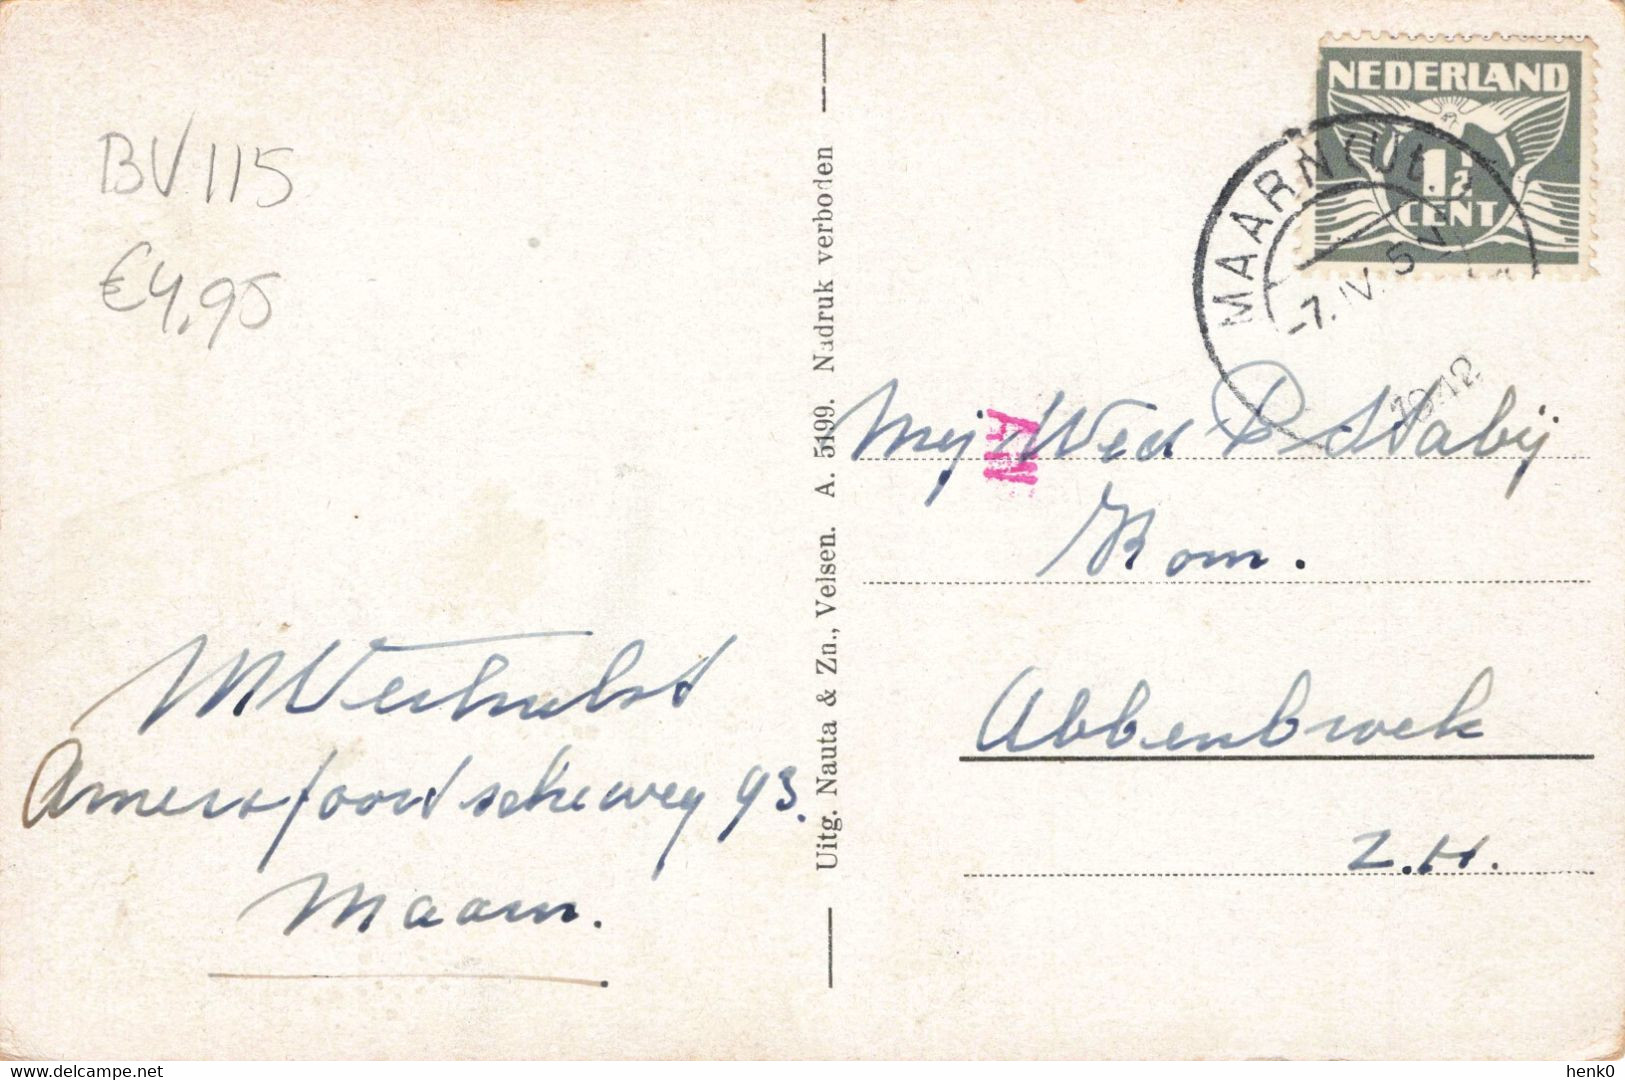 BV 115
€4,95
M Verhulst
Amersfoordscheweg 93.
Maarn.
Uitg. Nauta & Zn., Velsen. A. 5199. Nadruk verboden
NEDERLAND
1½
CENT
MAARN (Ut.)
-7.IV.52
1942
Mej Wed P. Stabij
Kom.
Abbenbroek
Z.H.
delcampe.net
henk0